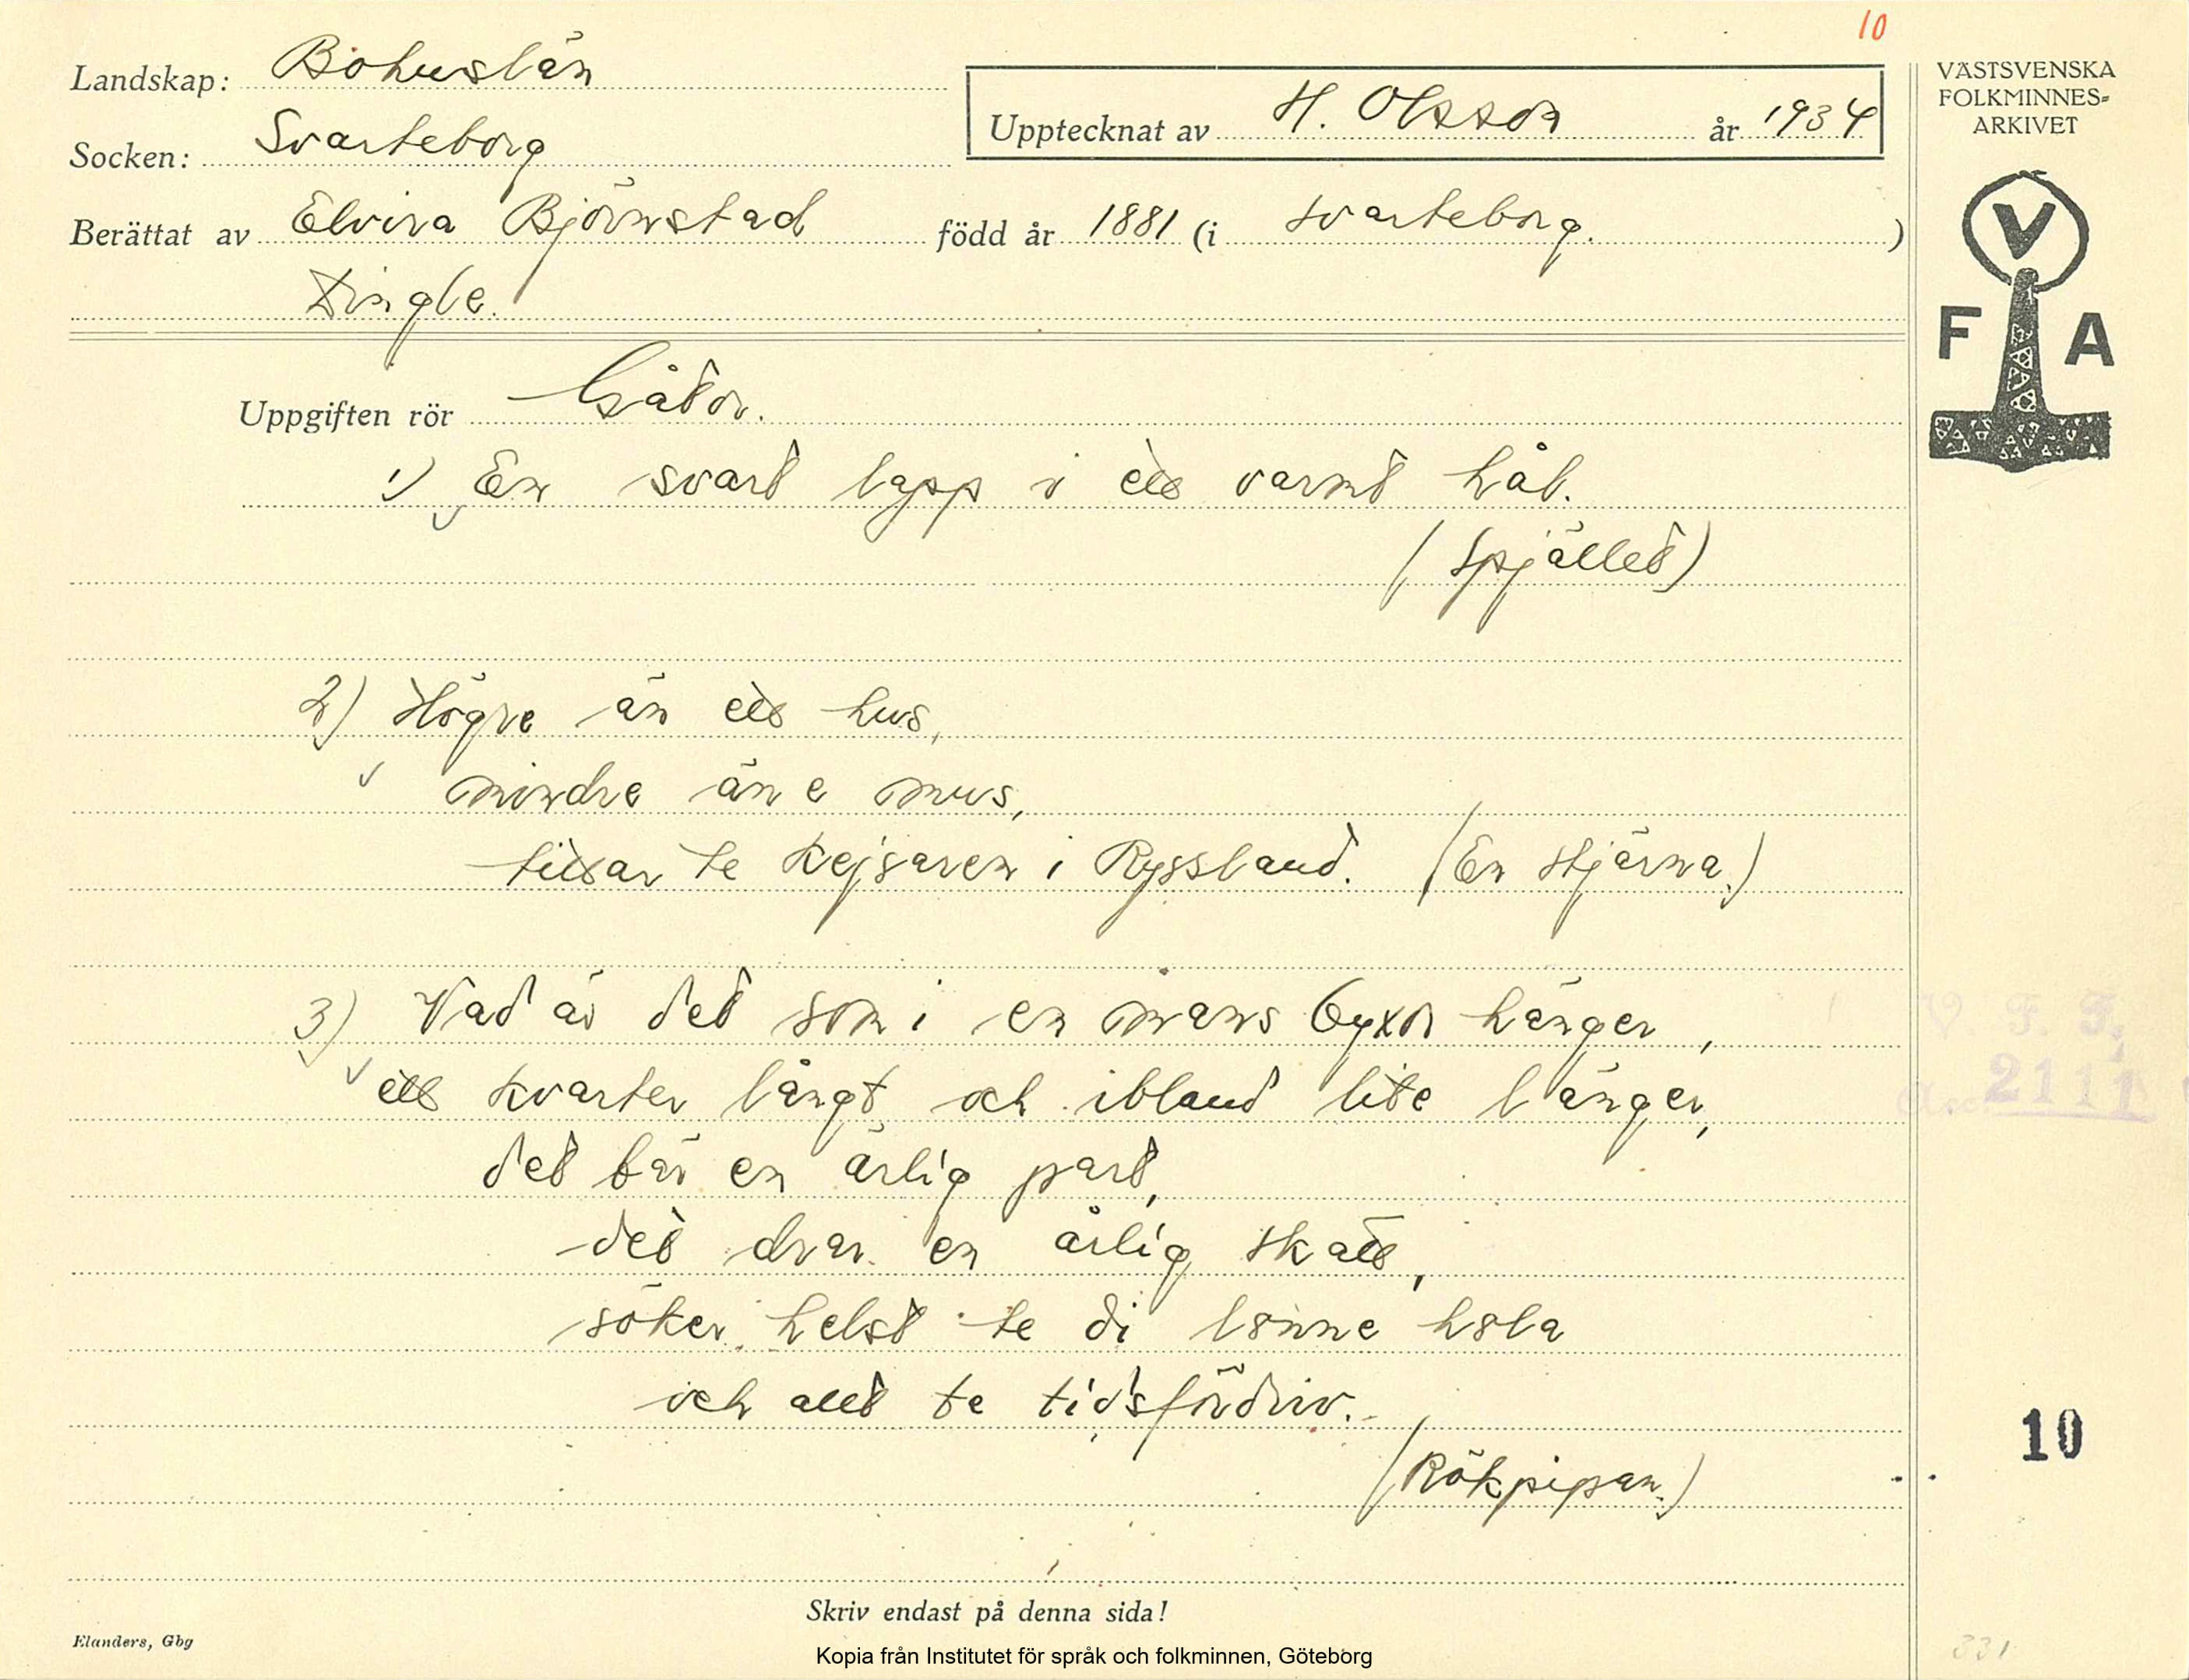 10
Landskap: Bohuslän
Socken: Svarteborg
Upptecknat av H. Olsson år 1934
Berättat av Elvira Björnstad född år 1881 (i Svarteborg.)
Dingle.
VÄSTSVENSKA
FOLKMINNES=
ARKIVET
V
F A
Uppgiften rör Gåtor.
1) En svart lapp i ett varmt hål.
(Spjället)
2) Högre än ett hus,
mindre än e mus,
tittar te kejsaren i Ryssland. (En stjärna.)
3) Vad är det som i en mans byxor hänger,
ett kvarter långt och ibland lite länger,
det bär en ärlig part,
det drar en årlig skatt,
söker helst te di lönne hola
och allt te tidsfördriv.
(Rökpipan.)
V F F.
Acc. 2111
10
Skriv endast på denna sida!
Elanders, Gbg
331
Kopia från Institutet för språk och folkminnen, Göteborg